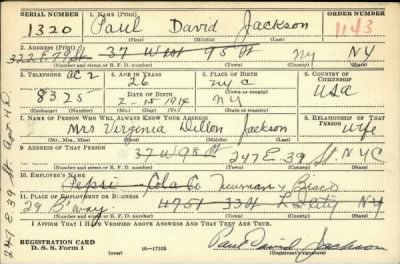 SERIAL NUMBER 1. NAME (Print) ORDER NUMBER
1320 Paul David Jackson 1143
(First) (Middle) (Last)
2. ADDRESS (Print)
322 E 79 St 37 West 95 St NY NY
(Number and street or R. F. D. number) (Town) (County) (State)
3. TELEPHONE 4. AGE IN YEARS 5. PLACE OF BIRTH 6. COUNTRY OF CITIZENSHIP
AC 2 26 NYC
8325 DATE OF BIRTH NY USA
2-15-1914
(Exchange) (Number) (Mo.) (Day) (Yr.) (State or country)
7. NAME OF PERSON WHO WILL ALWAYS KNOW YOUR ADDRESS 8. RELATIONSHIP OF THAT PERSON
Mrs Virginia Dillon Jackson Wife
(Mr., Mrs., Miss) (First) (Middle) (Last)
9. ADDRESS OF THAT PERSON
37 W 95 St 247 E. 39 St. NYC
(Number and street or R. F. D. number) (Town) (County) (State)
10. EMPLOYER'S NAME
Pepsi-Cola Co Newman & Bisco
11. PLACE OF EMPLOYMENT OR BUSINESS
29 B'way. 4751 33 St L I City NY
(Number and street or R. F. D. number) (Town) (County) (State)
I AFFIRM THAT I HAVE VERIFIED ABOVE ANSWERS AND THAT THEY ARE TRUE.
REGISTRATION CARD
D. S. S. Form 1 (over) 16-17105 Paul David Jackson
(Registrant's signature)
247 E 39 St. Apt 4D.